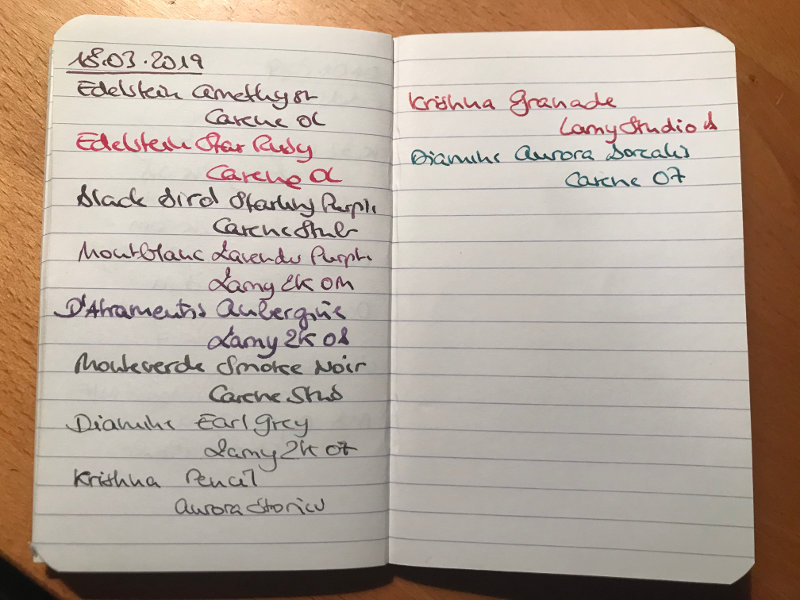 18.03.2019
Edelstein Amethyst
Carene OL
Edelstein Star Ruby
Carene OL
Black Bird Starling Purple
Carene Stub
Montblanc Lavender Purple
Lamy 2K OM
D'Atramentis Aubergine
Lamy 2K OB
Monteverde Smoke Noir
Carene Stub
Diamine Earl Grey
Lamy 2K
Krishna Pencil
Aurora Storica
Krishna Granade
Lamy Studio
Diamine Aurora Borealis
Carene